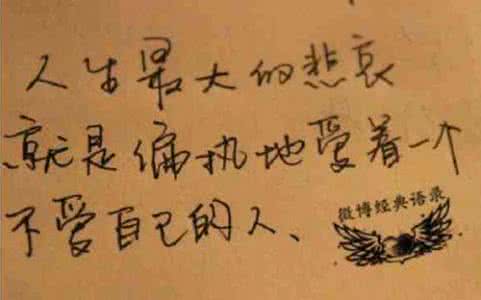 人生最大的悲哀
就是偏执地爱着一个
不爱自己的人、
微博经典语录